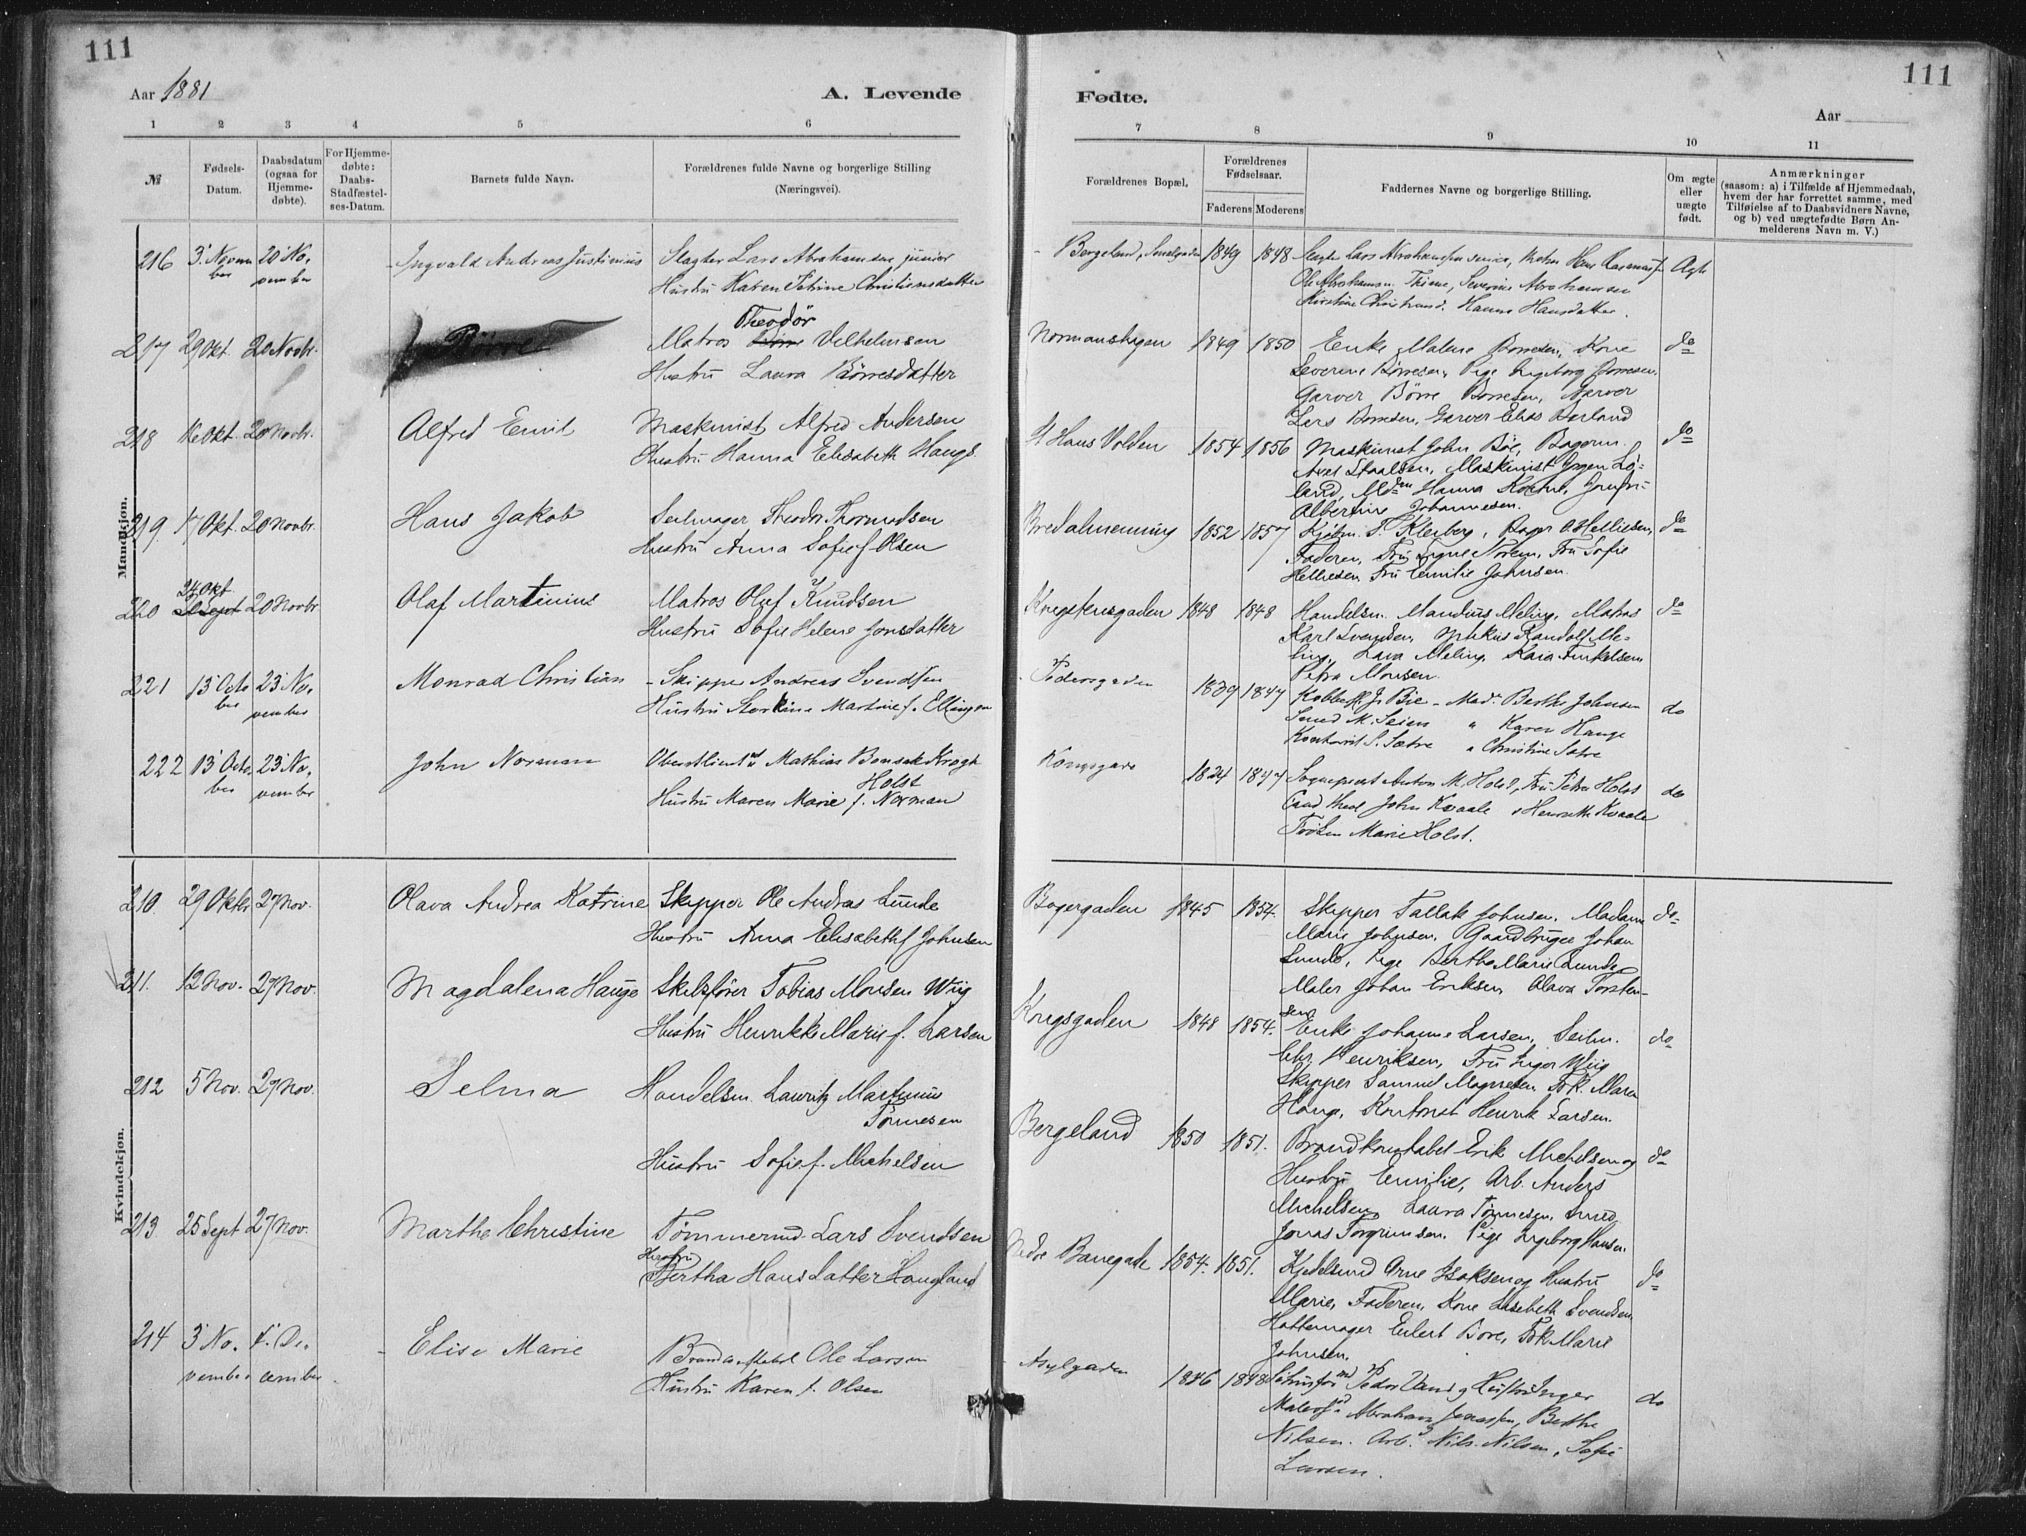 111
111
Aar 1881
A. Levende
Fødte.
Aar
1 2 3 4 5 6
7 8 9 10 11
№
Fødsels-Datum.
Daabsdatum (ogsaa for Hjemme-døbte).
For Hjemme-døbte: Daabs-Stadfæstel-ses-Datum.
Barnets fulde Navn.
Forældrenes fulde Navne og borgerlige Stilling
(Næringsvei).
Forældrenes Bopæl.
Forældrenes Fødselsaar.
Faderens Moderens
Faddernes Navne og borgerlige Stilling.
Om ægte eller uægte født.
Anmærkninger
(saasom: a) i Tilfælde af Hjemmedaab,
hvem der har forrettet samme, med
Tilføielse af to Daabsvidners Navne,
og b) ved uægtefødte Børn An-
melderens Navn m. V.)
Mandkjøn.
216 3' Novem 20' No, Ingvald Andreas Justinius Slagter Lars Abrahamsen junior
ber vember Hustru Karen Petrine Christiansdatter
Bergeland, 1849 1848 Lars Abrahamsen senior, Hans
Ole Abrahamsen Severine Abrahamsen
Hanna Hansdatter.
217 29 Okt. 20 Novbr. Børre Matros Theodør Vilhelmsen
Hustru Laura Børresdatter
1849 1850 Enke Malene Børresen, Kone do
Severine Børresen, Pige Ingeborg Børresen,
Garver Børre Børresen, Garver
Lars Børresen, Garver Elias
218 Okt. 20 Novbr. Alfred Emil Maskinist Alfred Andersen
Hustru Hanna Elisabeth Haugs
St Hans Volden 1854 1856 Maskinist John Bøe, do
Maskinist Jørgen Lø-
land, Hanna Jomfru
Albertine Johannesen.
219 17 Okt. 20 Novbr. Hans Jakob Seilmager Theodor Thormodsen
Hustru Anna Sofie f. Olsen
Bredalmenning 1852 1857 Kleiberg, Helliesen, do
Faderen, Fru Signe Norem, Fru Sofie
Helliesen Fru Emilie Johnsen.
220 24 Okt. 20 Novbr Olaf Martinius Matros Olaf Knudsen
Hustru Sofie Helene Jonsdatter
1848 1848 Handelsm. Mandius Meling, Matros do
Karl Svendsen, Randolf Me-
ling, Lava Meling,
Petra Monsen.
221 13' Octo 23' No, Monrad Christian Skipper Andreas Svendsen
ber vember Hustru Martine f. Ellingsen
Pedersgaden 1839 1847 Bie - Mad. Berthe Johnsen do
Karen Hauge
Christine Sætre
222 13' Octo 23' No, John Norman Oberstlieut. Mathias Bonsak Krogh
ber vember Holst
Hustru Maren Marie f. Norman
Kongsgaard 1834 1847 Sogneprest Anton M. Holst, Fru Petra Holst do
John Kvaale Henriette Kvaale
Frøken Marie Holst.
Kvindekjøn.
210. 29 Oktbr 27 Nov. Olava Andrea Katrine Skipper Ole Andreas Lunde
Hustru Anna Elisabeth f. Johnsen
Bagergaden 1845 1854. Skipper Tallak Johnsen. Madam do.
Marie Johnsen. Gaardbruger Johan
Lunde, Pige Bertha Marie Lunde,
Maler Johan Eriksen, Olava Torsten-
sen
211. 12 Nov. 27 Nov. Magdalena Hauge Skibsfører Tobias Monsen Wiig
Hustru Henrikke Marie f. Larsen
Kongsgaden 1848 1854. Enke Johanne Larsen, Seilm. do
Chr. Henriksen, Fru Inger Wiig
Skipper Samuel Frk. Maren
Haug, Kontorist Henrik Larsen.
212 5 Nov. 27 Nov. Selma Handelsm. Lauritz Martinius
Tønnesen
Hustru Sofie f. Michelsen
Bergeland 1850 1851. Brandkonstabel Erik Michelsen og do
Hustru Emilie, Arb. Anders
Michelsen, Laura Tønnesen, Smed
Jonas Torgrimsen. Pige Ingeborg Hansen
213 25 Sept 27 Nov. Marthe Christine Tømmermd. Lars Svendsen
Hustru
Bertha Hansdatter Haugland
Nedre Banegade 1854. 1851. Kjedelsmd Arne Isaksen og Hustru do
Marie, Faderen, Kone Lisebeth Svendsen,
Hattemager Eilert Bore, Frk Marie
Johnsen.
214 3' No, 4' De, Elise Marie Ole Larsen
vember cember Hustru Karen f. Olsen
Asylgaden 1846 1848 Peder og Hustru Inger do
Abraham Berthe
Nilsen. Arb. Nils Nilsen, Sofie
Larsen.